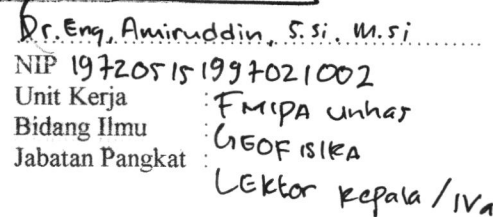 Dr. Eng, Amiruddin, S.si. M.si
NIP 197205151997021002
Unit Kerja : FMIPA unhas
Bidang Ilmu : GEOFISIKA
Jabatan Pangkat : LEKtor Kepala / IVa